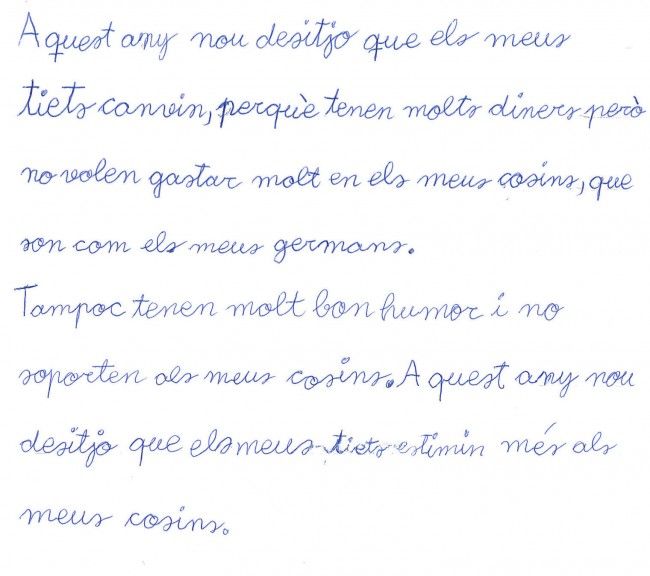 Aquest any nou desitjo que els meus
tiets canvin, perquè tenen molts diners però
no volen gastar molt en els meus cosins, que
son com els meus germans.
Tampoc tenen molt bon humor i no
soporten als meus cosins. Aquest any nou
desitjo que els meus tiets estimin més als
meus cosins.